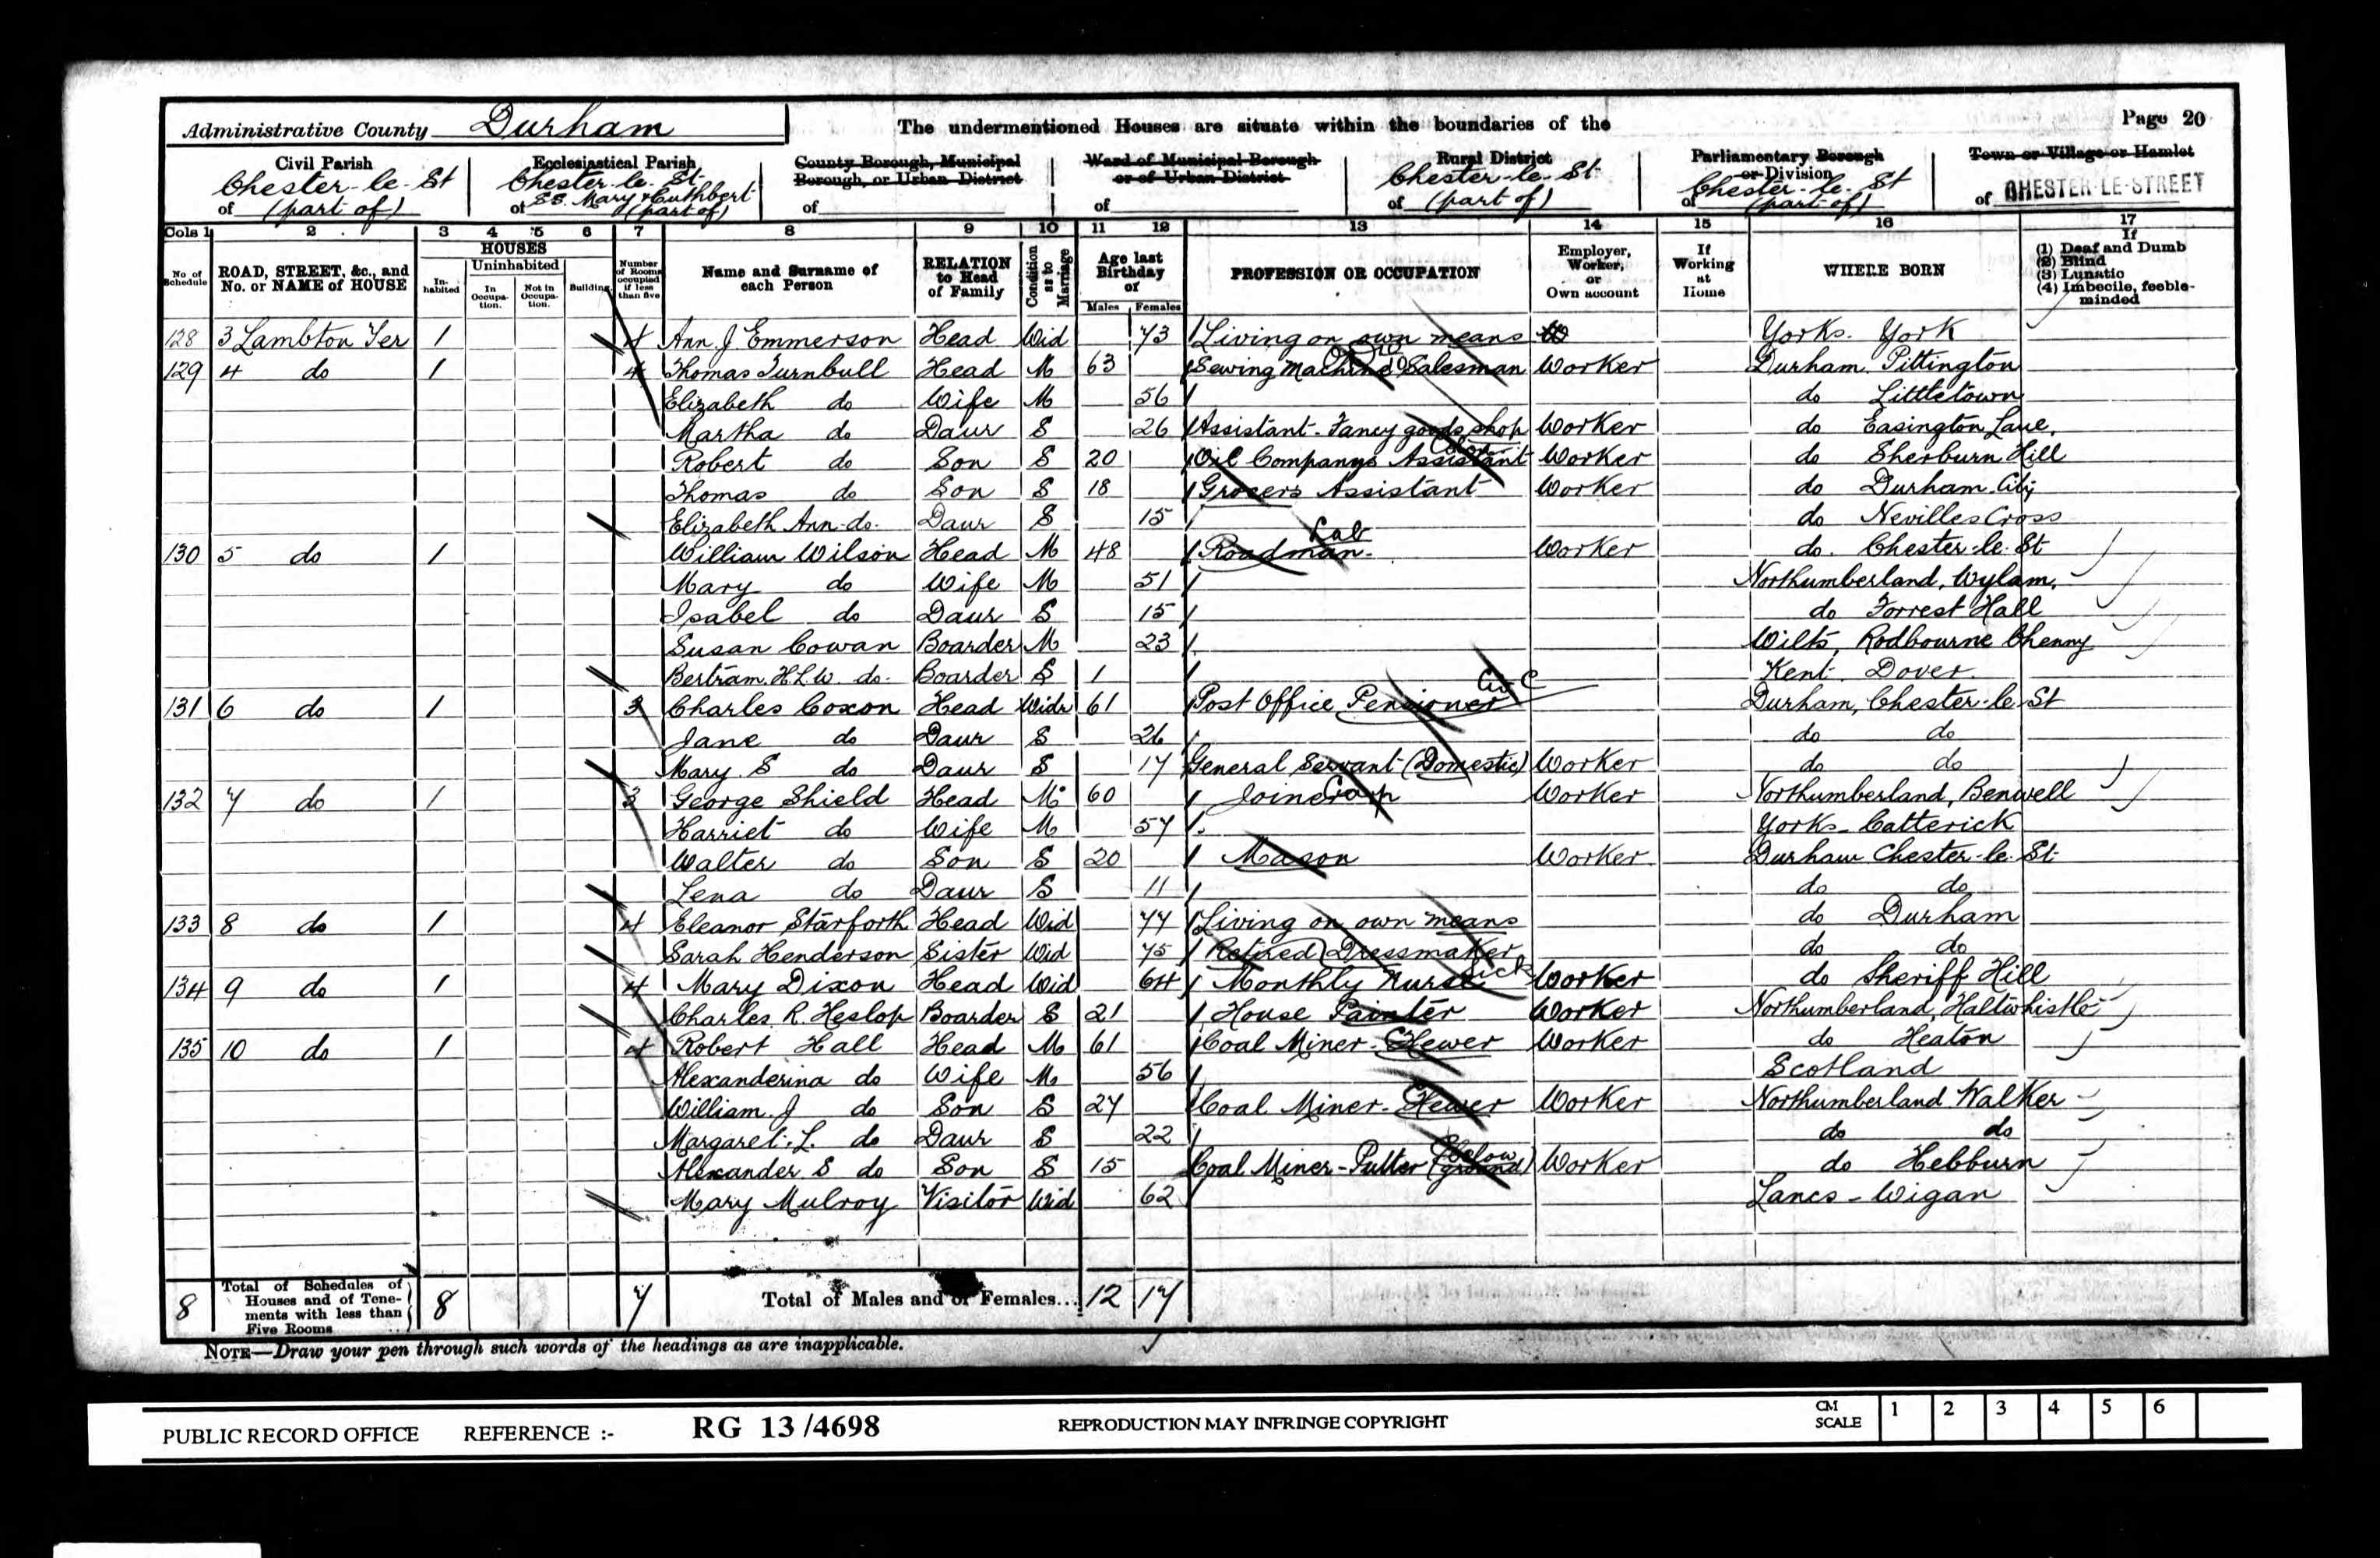 Administrative County Durham The undermentioned Houses are situate within the boundaries of the Page 20
Civil Parish Ecclesiastical Parish County Borough, Municipal Borough, or Urban District Ward of Municipal Borough or of Urban District Rural District Parliamentary Borough or Division Town or Village or Hamlet
of Chester-le-St (part of) of Chester-le-St SS. Mary & Cuthbert (part of) of of of Chester-le-St (part of) of Chester-le-St (part of) of CHESTER-LE-STREET
Cols 1 2 3 4 5 6 7 8 9 10 11 12 13 14 15 16 17
No of Schedule ROAD, STREET, &c., and No. or NAME of HOUSE HOUSES In-habited Uninhabited In Occupa-tion. Not in Occupa-tion. Building Number of Rooms occupied if less than five Name and Surname of each Person RELATION to Head of Family Condition as to Marriage Age last Birthday of Males Females PROFESSION OR OCCUPATION Employer, Worker, or Own account If Working at Home WHERE BORN If (1) Deaf and Dumb (2) Blind (3) Lunatic (4) Imbecile, feeble-minded
128 3 Lambton Ter 1 4 Ann J. Emmerson Head Wid 73 Living on own means Yorks. York
129 4 do 1 4 Thomas Turnbull Head M 63 Sewing Machine Salesman Worker Durham Pittington
Elizabeth do Wife M 56 do Littletown
Martha do Daur S 26 Assistant - Fancy goods shop Worker do Easington Lane.
Robert do Son S 20 Oil Companys Assistant Worker do Sherburn Hill
Thomas do Son S 18 Grocers Assistant Worker do Durham City
Elizabeth Ann do. Daur S 15 do Nevilles Cross
130 5 do 1 William Wilson Head M 48 Roadman. Lab Worker do. Chester-le-St
Mary do Wife M 51 Northumberland, Wylam.
Isabel do Daur S 15 do Forrest Hall
Susan Cowan Boarder M 23 Wilts, Rodbourne Chenny
Bertram. H.L.W. do. Boarder S 1 Kent. Dover.
131 6 do 1 3 Charles Coxon Head Widr 61 Post Office Pensioner Durham, Chester-le-St
Jane do Daur S 26 do do
Mary. S do Daur S 17 General Servant (Domestic) Worker do do
132 7 do 1 3 George Shield Head M 60 Joiner Carp Worker Northumberland, Benwell
Harriet do Wife M 57 Yorks - Catterick
Walter do Son S 20 Mason Worker Durham Chester-le-St
Lena do Daur S 11 do do
133 8 do 1 4 Eleanor Starforth Head Wid 77 Living on own means do Durham
Sarah Henderson Sister Wid 75 Retired Dressmaker do do
134 9 do 1 4 Mary Dixon Head Wid 64 Monthly Nurse Sick Worker do Sheriff Hill
Charles R. Heslop Boarder S 21 House Painter Worker Northumberland, Haltwhistle
135 10 do 1 4 Robert Hall Head M 61 Coal Miner - Hewer Worker do Heaton
Alexanderina do Wife M 56 Scotland
William. J do Son S 27 Coal Miner - Hewer Worker Northumberland Walker
Margaret. L. do Daur S 22 do do
Alexander S do Son S 15 Coal Miner - Putter (below ground) Worker do Hebburn
Mary Mulroy Visitor Wid 62 Lancs - Wigan
8 Total of Schedules of Houses and of Tenements with less than Five Rooms 8 7 Total of Males and of Females... 12 17
NOTE—Draw your pen through such words of the headings as are inapplicable.
PUBLIC RECORD OFFICE REFERENCE :- RG 13 /4698 REPRODUCTION MAY INFRINGE COPYRIGHT CM SCALE 1 2 3 4 5 6